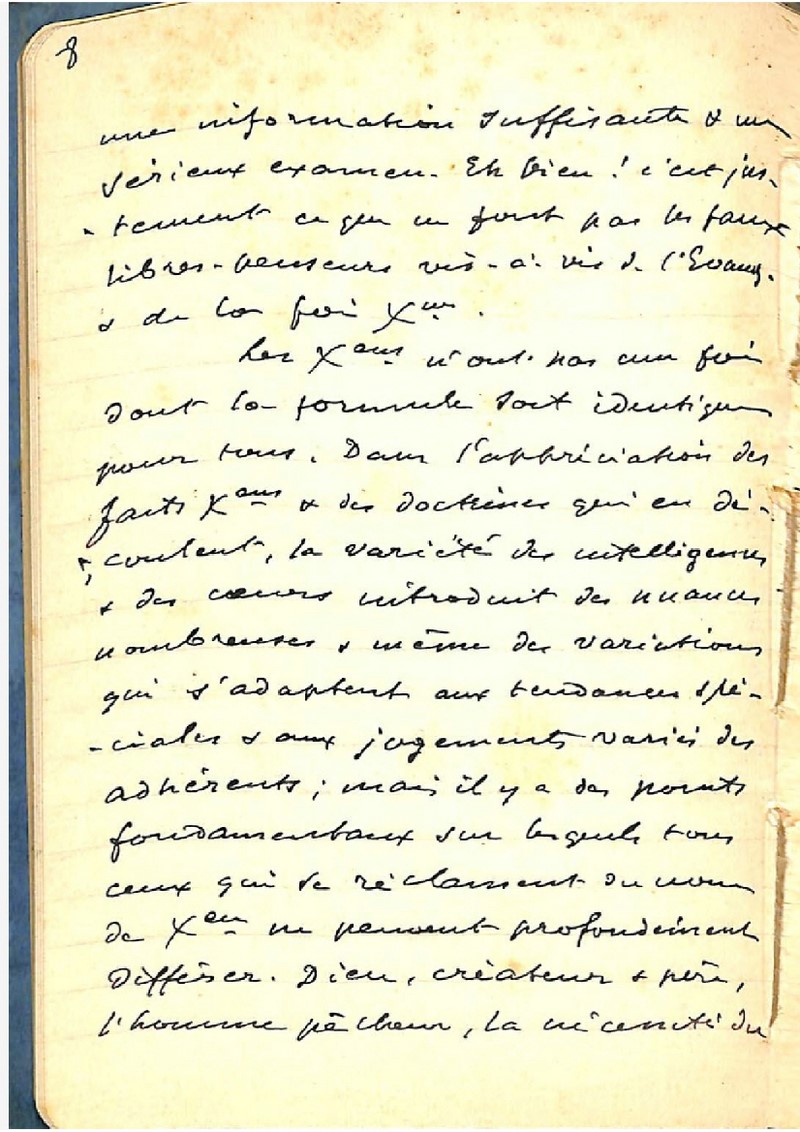 8
une information suffisante & un
sérieux examen. Eh bien ! c'est jus-
-tement ce que ne font pas les faux
libres-penseurs vis-à-vis de l'Evang.
& de la foi Xne.
Les Xens n'ont pas une foi
dont la formule soit identique
pour tous. Dans l'appréciation des
faits Xens & des doctrines qui en dé-
-coulent, la variété des intelligences
& des cœurs introduit des nuances
nombreuses & même des variations
qui s'adaptent aux tendances spé-
-ciales & aux jugements variés des
adhérents ; mais il y a des points
fondamentaux sur lesquels tous
ceux qui se réclament du nom
de Xen ne peuvent profondément
différer. Dieu, créateur & père,
l'homme pécheur, la nécessité du